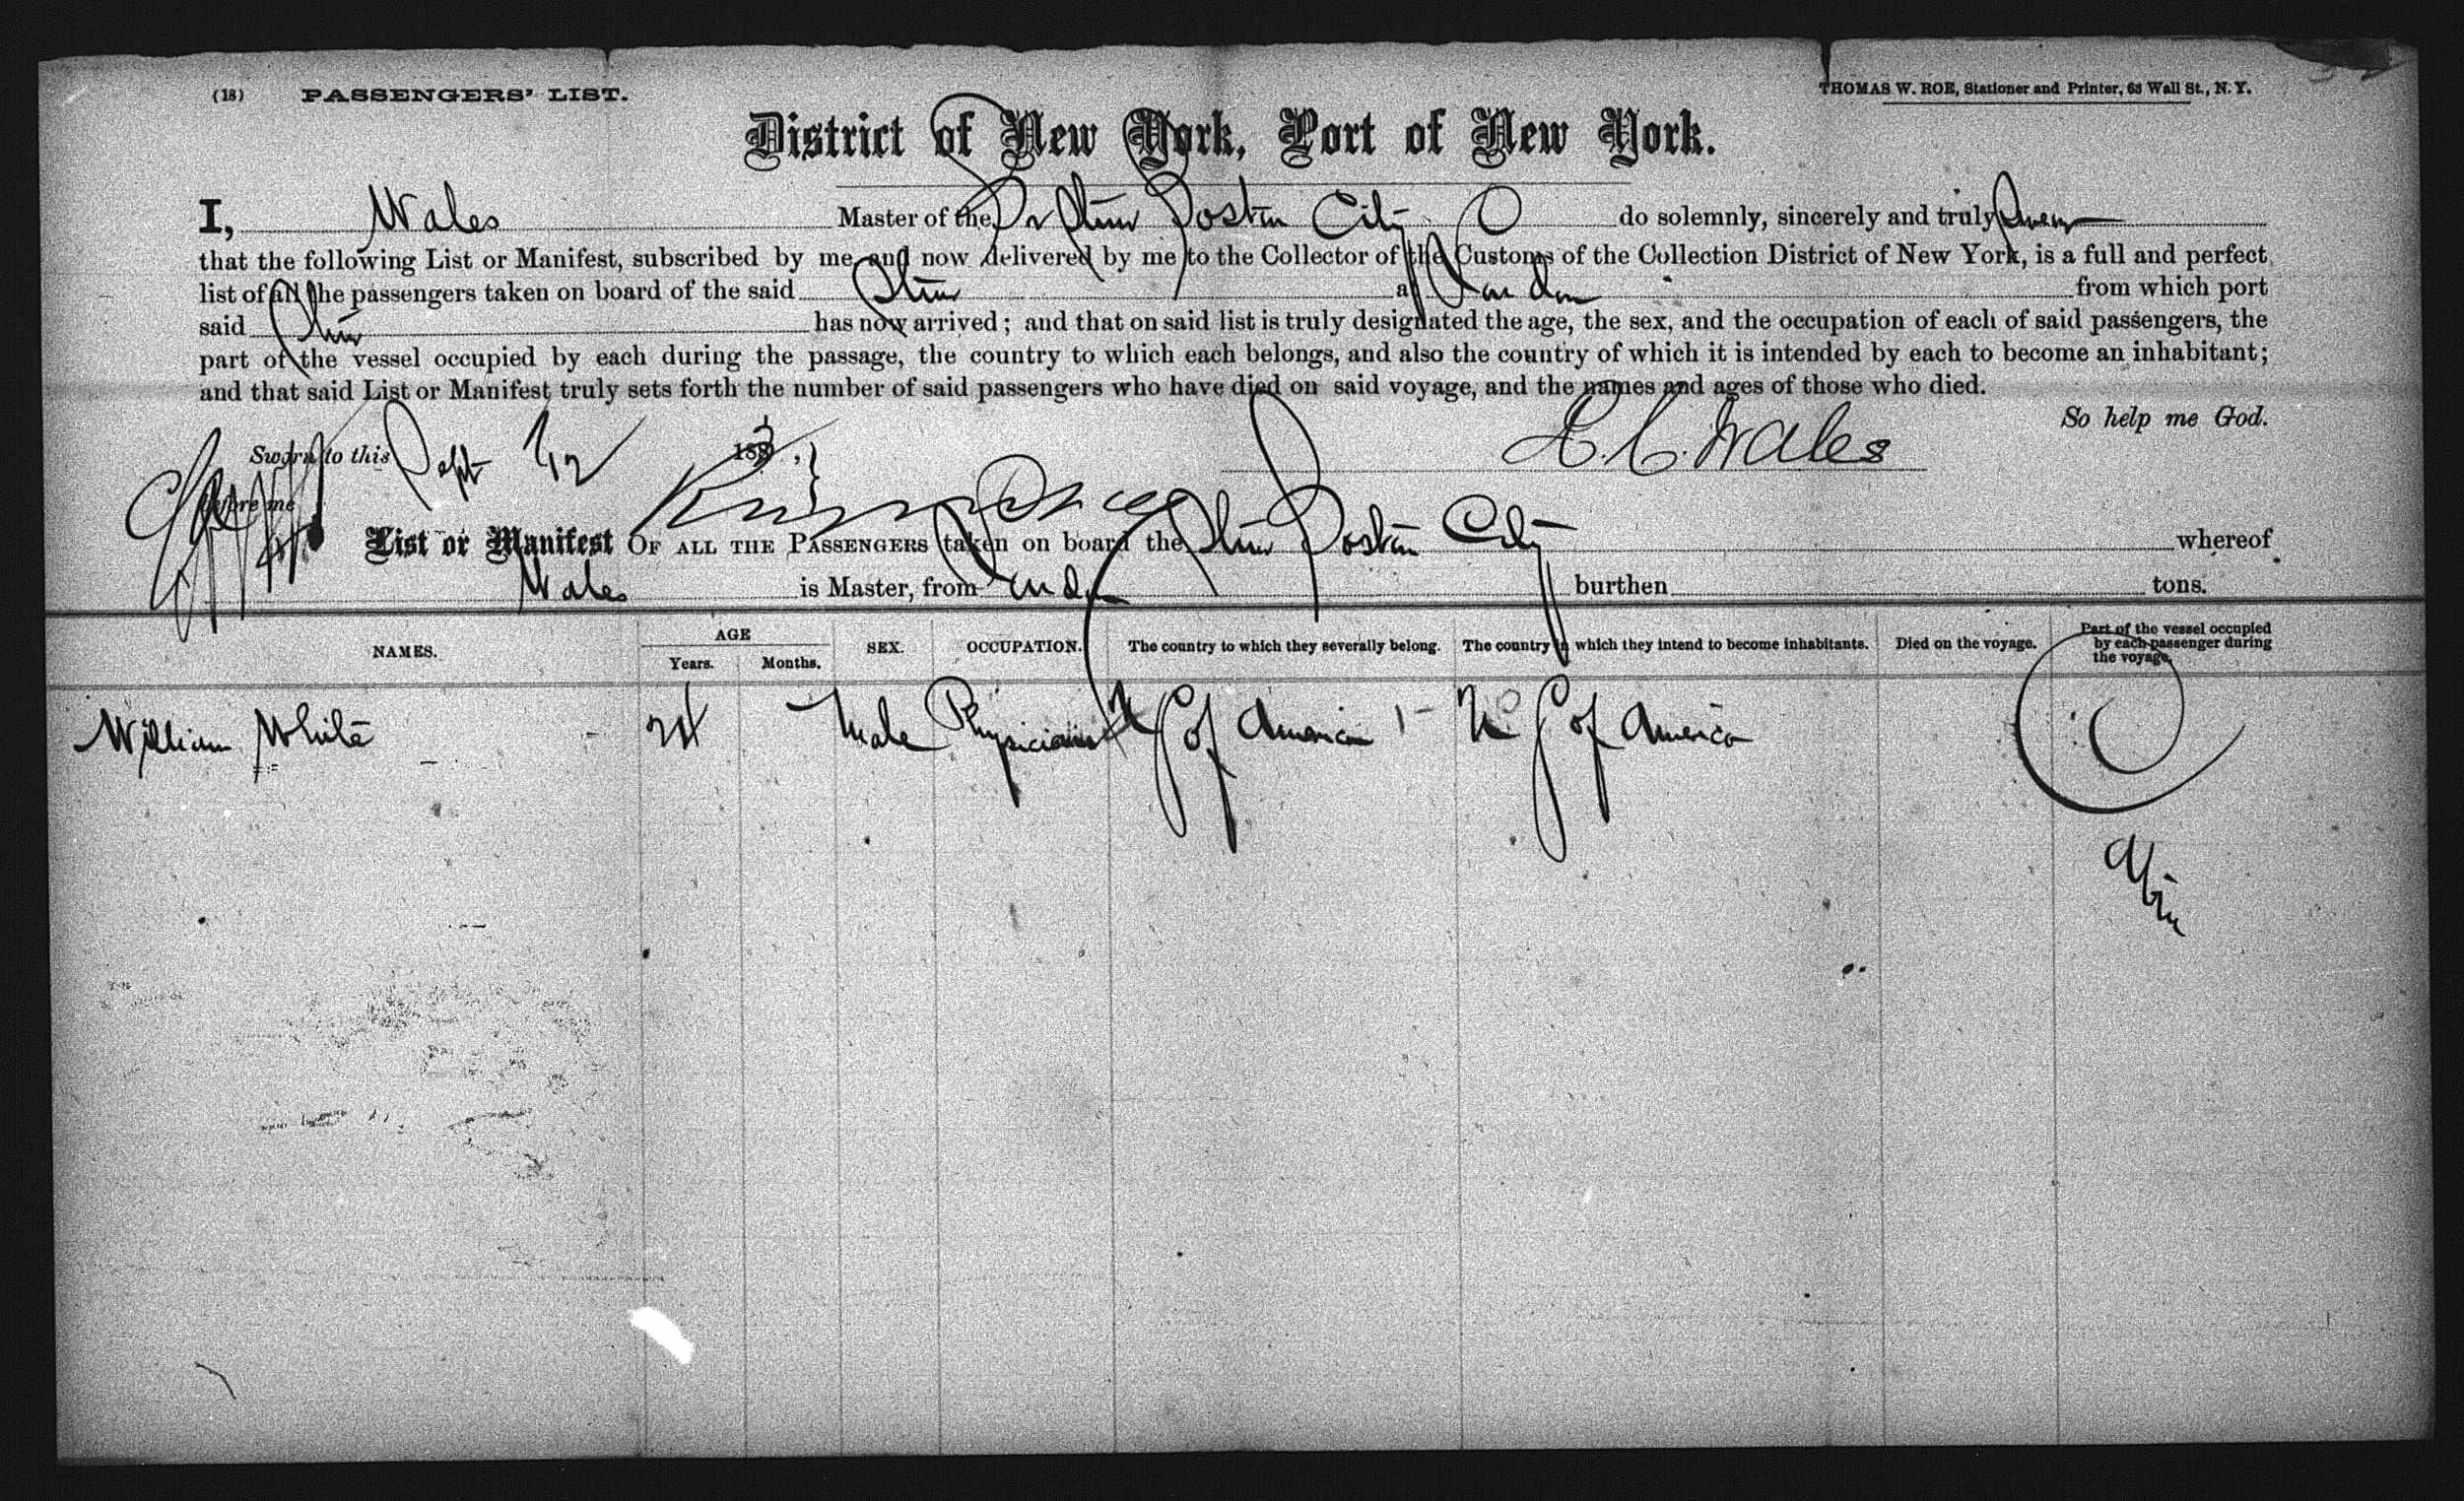 (18) PASSENGERS' LIST. THOMAS W. ROE, Stationer and Printer, 63 Wall St., N.Y.
District of New York, Port of New York.
I, Wales Master of the Br Stmr Boston City do solemnly, sincerely and truly Swear
that the following List or Manifest, subscribed by me, and now delivered by me to the Collector of the Customs of the Collection District of New York, is a full and perfect
list of all the passengers taken on board of the said Stmr at London from which port
said Stmr has now arrived; and that on said list is truly designated the age, the sex, and the occupation of each of said passengers, the
part of the vessel occupied by each during the passage, the country to which each belongs, and also the country of which it is intended by each to become an inhabitant;
and that said List or Manifest truly sets forth the number of said passengers who have died on said voyage, and the names and ages of those who died.
So help me God.
Sworn to this Sept 12 1883, C. Wales
before me
List or Manifest OF ALL THE PASSENGERS taken on board the Stmr Boston City whereof
Wales is Master, from London burthen tons.
NAMES. AGE Years. Months. SEX. OCCUPATION. The country to which they severally belong. The country in which they intend to become inhabitants. Died on the voyage. Part of the vessel occupied by each passenger during the voyage.
William White 24 Male Physician U S of America U S of America